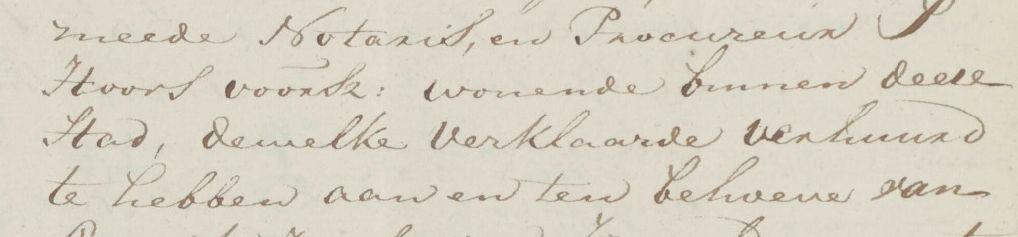 meede Notaris, en Procureur P
Hoors voorsz: wonende binnen deese
Stad, dewelke verklaarde verhuurd
te hebben aan en ten behoeve van